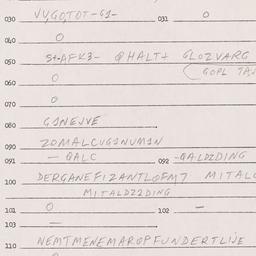 030 VV,GO,TOT-G1- 031 O
040 O
050 S+AFK3- @HALT+ GLOZVARG
060 O GOPL
070 O
080 G1NEJVE
090 ZOMALCUG1NUM1N
091 -GALC 092 -GALDZDING
100 DERGANEFIZANTLOFM7 MITALC
MITALDZ1DING
101 O 102 -
103 -
110 NEMTMENEMAROPFUNDERTLIJE